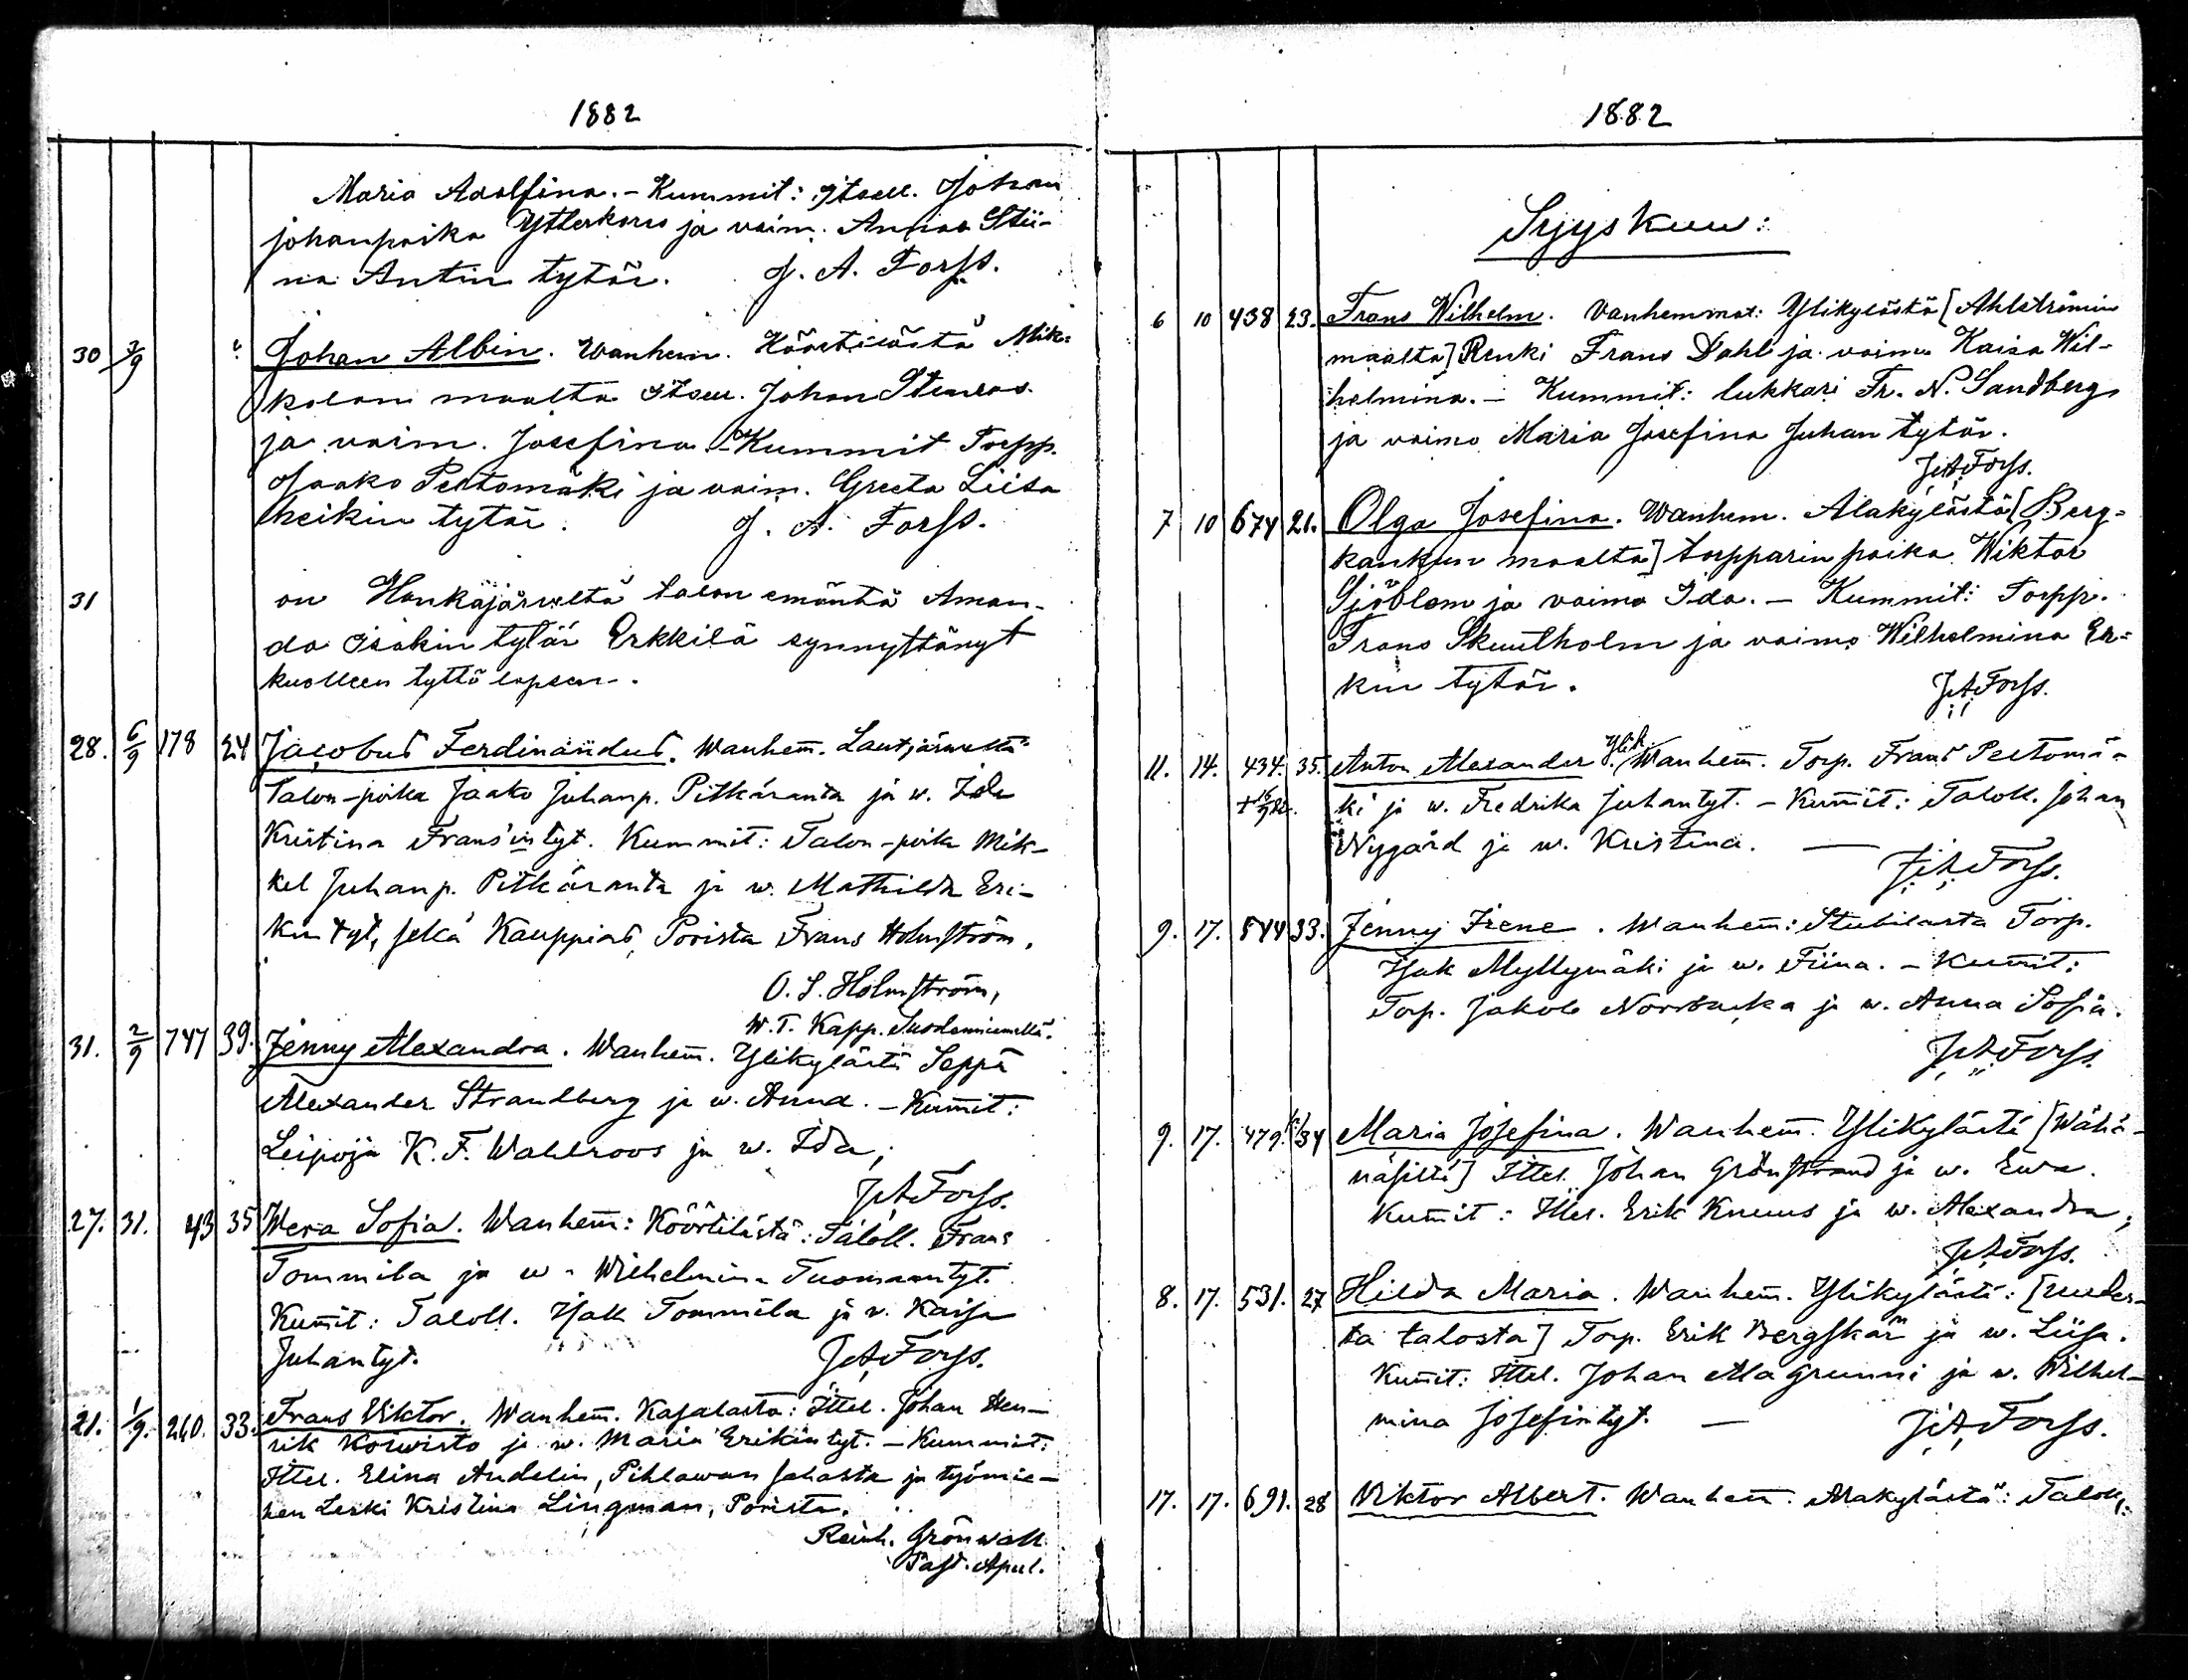 1882
Maria Adolfina. – Kummit: itsell. Johan
johanpoika Ytterkorus ja vaim. Annaa Stii-
na Antin tytär. J. A. Forss.
30 3/9 " Johan Albin. Wanhem. Köörtilästä Mik-
kolan maalta itsell. Johan Stenroos
ja vaim. Josefina. – Kummit Torpp.
Jaako Peltomäki ja vaim. Greeta Liisa
heikin tytär. J. A. Forss.
31 on Honkajärveltä talon emäntä Aman-
da Isakin tytär Erkkilä synnyttänyt
kuolleen tyttö lapsen.
28. 6/9 178 24 Jacobus Ferdinandus. Wanhem̅. Lautjärweltä
Talon-poika Jaako Juhanp. Pitkäranta ja w. Ida
Kristina Frans'intyt. Kummit: Talon-poika Mik-
kel Juhanp. Pitkäranta ja w. Mathilda Eri-
kintyt, sekä Kauppias, Porista Frans Holmström.
O. S. Holmström,
W. T. Kapp. Susdeniemellä.
31. 2/9 747 39. Jenny Alexandra. Wanhem̅. Ylikylästä Seppä
Alexander Strandberg ja w. Anna. – Kum̅it:
Leipojä K. F. Wahlroos ja w. Ida,
JAForss.
27. 31. 43 35 Wera Sofia. Wanhem̅: Köörtilästä: Taloll. Frans
Tommila ja w. Wilhelmina Tuomaantyt.
Kum̅it: Taloll. Isak Tommila ja v. Kaisa
Juhantyt. JAForss.
21. 1/9. 260. 33. Frans Viktor. Wanhem̅. Kasalasta: Ittel. Johan Hen-
rik Koiwisto ja w. Maria Erikintyt. – Kummit:
Ittel. Elina Andelin, Pihlawan sahasta ja työmie-
hen Leski Kristina Lingman, Porista.
Reinh. Grönwall
Past. Apul.
1882
Syyskuu:
6 10 438 23. Frans Wilhelm. Vanhemmat: Ylikylästä [Ahlströmin
maalta] Renki Frans Dahl ja vaimo Kaisa Wil-
helmina. – Kummit: lukkari Fr. N. Sandberg
ja vaimo Maria Josefina Juhan tytär.
JAForss.
7 10 674 21. Olga Josefina. Wanhem. Alakylästä [Berg-
kankun maalta] torpparin poika Wiktor
Sjöblom ja vaimo Ida. – Kummit: Torpp.
Frans Skuutholm ja vaimo Wilhelmina Er-
kin tytär. JAForss.
11. 14. 434. 35. Anton Alexander. Ylik. Wanhem̅. Torp. Frans Peltomä-
ki ja w. Fredrika Juhantyt. – Kum̅it: Taloll. Johan
Nygård ja w. Kristina. —
JAForss.
9. 17. 544 33. Jenny Irene. Wanhem̅: Stubilasta Torp.
Isak Myllymäki ja w. Fiina. – Kum̅it:
Torp. Jakob Norrbacka ja w. Anna Sofia.
JAForss.
9. 17. 479. 34 Maria Josefina. Wanhem̅. Ylikylästä [Wähä-
näsiltä] Ittel. Johan Grönstrand ja w. Ewa.
Kum̅it: Ittel. Erik Knuus ja w. Alexandra,
JAForss.
8. 17. 531. 27 Hilda Maria. Wanhem̅. Ylikylästä: [uudes-
ta talosta] Torp. Erik Bergskär ja w. Liisa.
Kum̅it: Ittel. Johan Ala Grunni ja w. Wilhel-
mina Josefintyt. — JAForss.
17. 17. 691. 28 Viktor Albert. Wanhem̅. Alakylästä: Taloll.